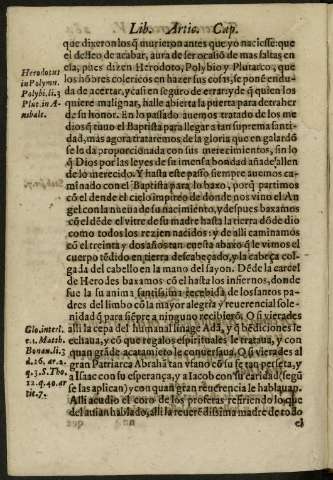 Lib. Artic. Cap.
que dixeron los q̃ murieron antes que yo naciesse: que
el desseo de acabar, aura de ser ocasiõ de mas faltas en
esta, pues dizen Herodoto, Polybio y Plutarco, que
los hõbres colericos en hazer sus cosas, se ponẽ en du-
da de acertar, y casi en seguro de errar: y de q̃ quien los
quiere malignar, halle abierta la puerta para detraher
de su honor. En lo passado auemos tratado de los me
dios q̃ tuuo el Baptista para llegar a tan suprema santi-
dad, mas agora trataremos de la gloria que en galardõ
se le da proporcionada con sus merecimientos, sin lo
q̃ Dios por las leyes de su imensa bondad añade allen
de lo merecido. Y hasta este passo siempre auemos ca-
minado con el Baptista para lo baxo, porq̃ partimos
cõ el dende el cielo impireo de donde nos vino el An
gel con la nueua de su nacimiento, y despues baxamos
cõ el dẽde el vitre de su madre hasta la tierra dõde dio
como todos los rezien nacidos: y de alli caminamos
cõ el treinta y dos años tan cuesta abaxo q̃ le vimos el
cuerpo tẽdido en tierra descabeçado, y la cabeça col-
gada del cabello en la mano del sayon. Dẽde la carcel
de Herodes baxamos cõ el hasta los infiernos, donde
fue la su anima santissima recebida de los santos pa-
dres del limbo cõ la mayor alegria y reuerencial sole-
nidad q̃ para siẽpre a ninguno recibiero. O si vierades
alli la cepa del humanal linage Adã, y q̃ bẽdiciones le
echaua, y cõ que regalos espirituales le trataua, y con
quan grãde acatamiẽto le conuersaua. O si vierades al
gran Patriarca Abrahã tan vfano cõ su fe tan perfeta, y
a Isaac con su esperança, y a Iacob con su caridad (segũ
se las aplican) y con quan gran reuerencia le hablauan.
Alli acudio el coro de los profetas refiriendo lo que
del auian hablado, alli la reuerẽdissima madre de todo
el
Herodotus
in Polymn.
Polybi. li. 3
Plut. in A-
nibale.
Glo. interl.
c. 1. Matth.
Bonau. li. 3
d. 26. ar. 2.
q. 3. S. Tho.
12. q. 40. ar
tic. 7.